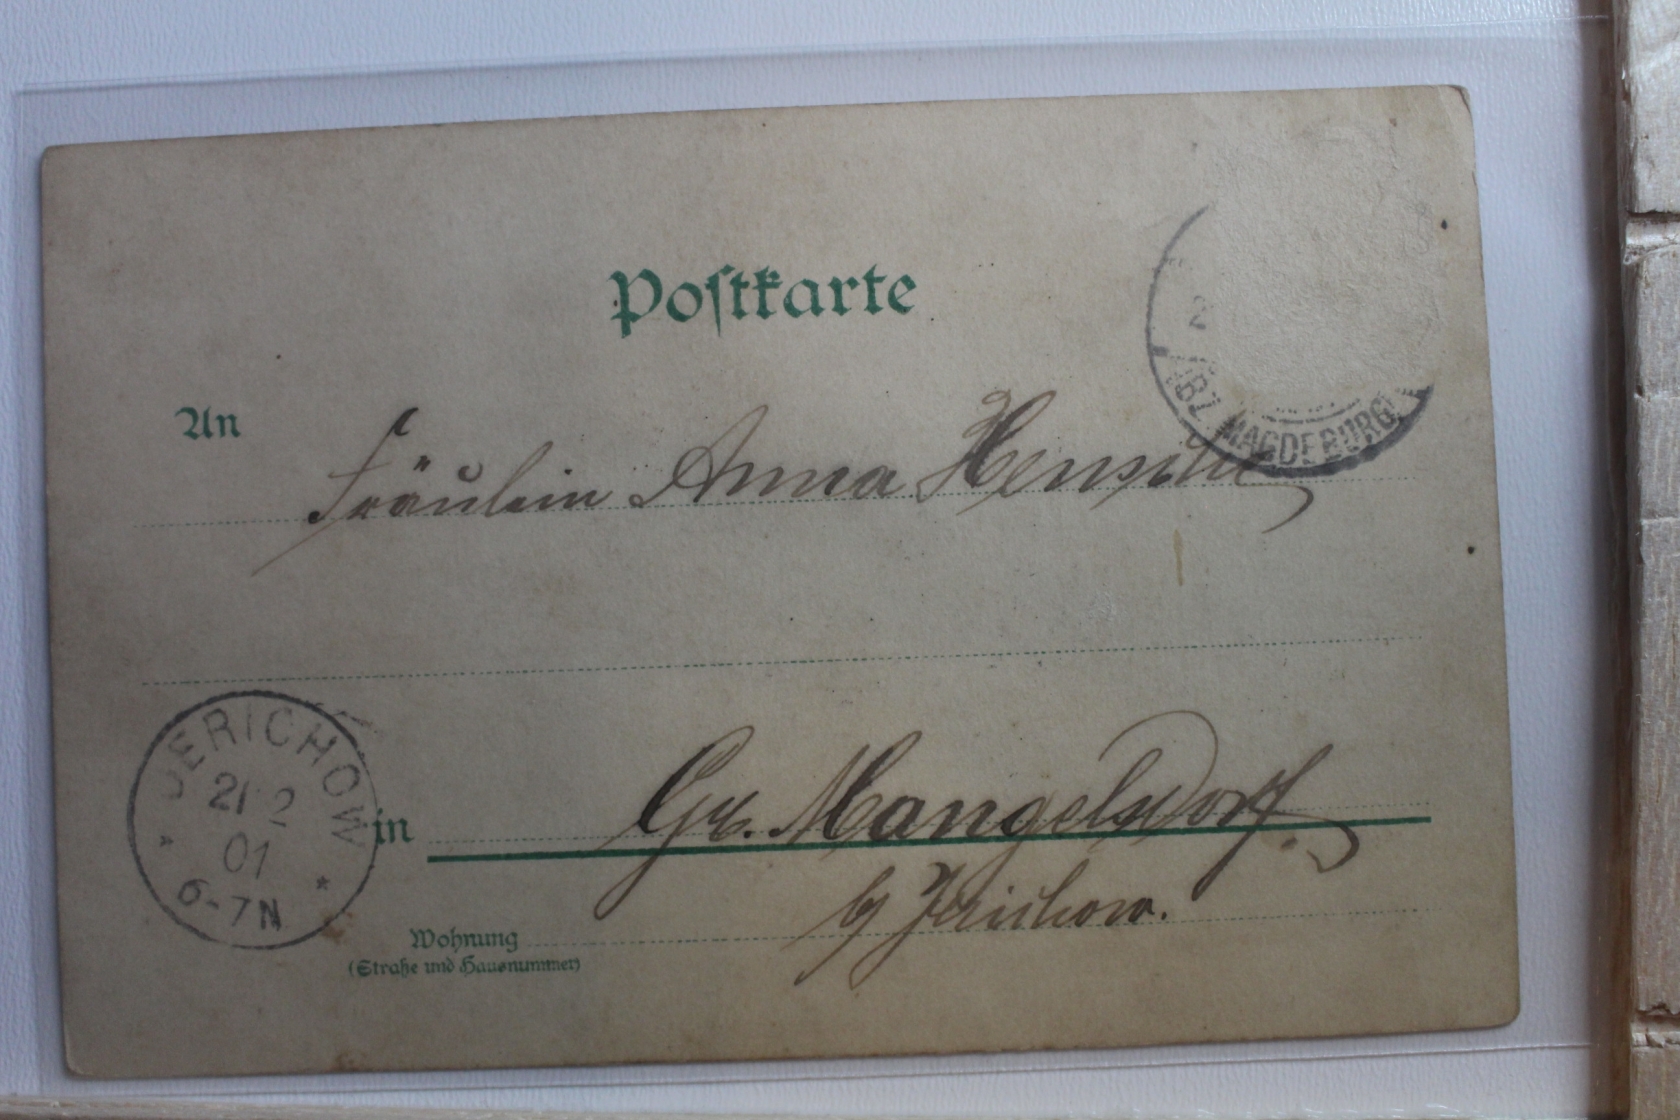 Postkarte
2
(BZ. MAGDEBURG)
An
Fräulein Anna
JERICHOW
21 2
01
6-7N
in Gr. Mangelsdorf.
b/ Jerichow.
Wohnung
(Straße und Hausnummer)